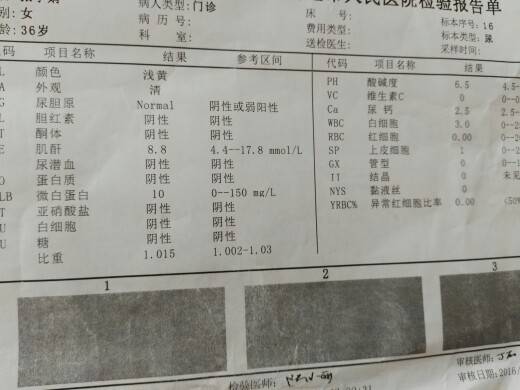 人民医院检验报告单
别:女 病人类型:门诊 床 号: 标本序号:16
龄:36岁 病历号: 费用类型: 标本类型:尿
科 室: 送检医生: 采样时间:
代码 项目名称 结果 参考区间 代码 项目名称 结果
颜色 浅黄 PH 酸碱度 6.5 4.5-
外观 清 VC 维生素C 0 0--0
尿胆原 Normal 阴性或弱阳性 Ca 尿钙 2.5 2.5-
胆红素 阴性 阴性 WBC 白细胞 3.0 0--2
酮体 阴性 阴性 RBC 红细胞 0.00 0--
肌酐 8.8 4.4--17.8 mmol/L SP 上皮细胞 1 0--
尿潜血 阴性 阴性 GX 管型 0 0--
蛋白质 阴性 阴性 II 结晶 0 未见
LB 微白蛋白 10 0--150 mg/L NYS 黏液丝 0
亚硝酸盐 阴性 阴性 YRBC% 异常红细胞比率 0.00 <50%
白细胞 阴性 阴性
糖 阴性 阴性
比重 1.015 1.002-1.03
1 2 3
检验医师: 审核医师:
审核日期:2016/